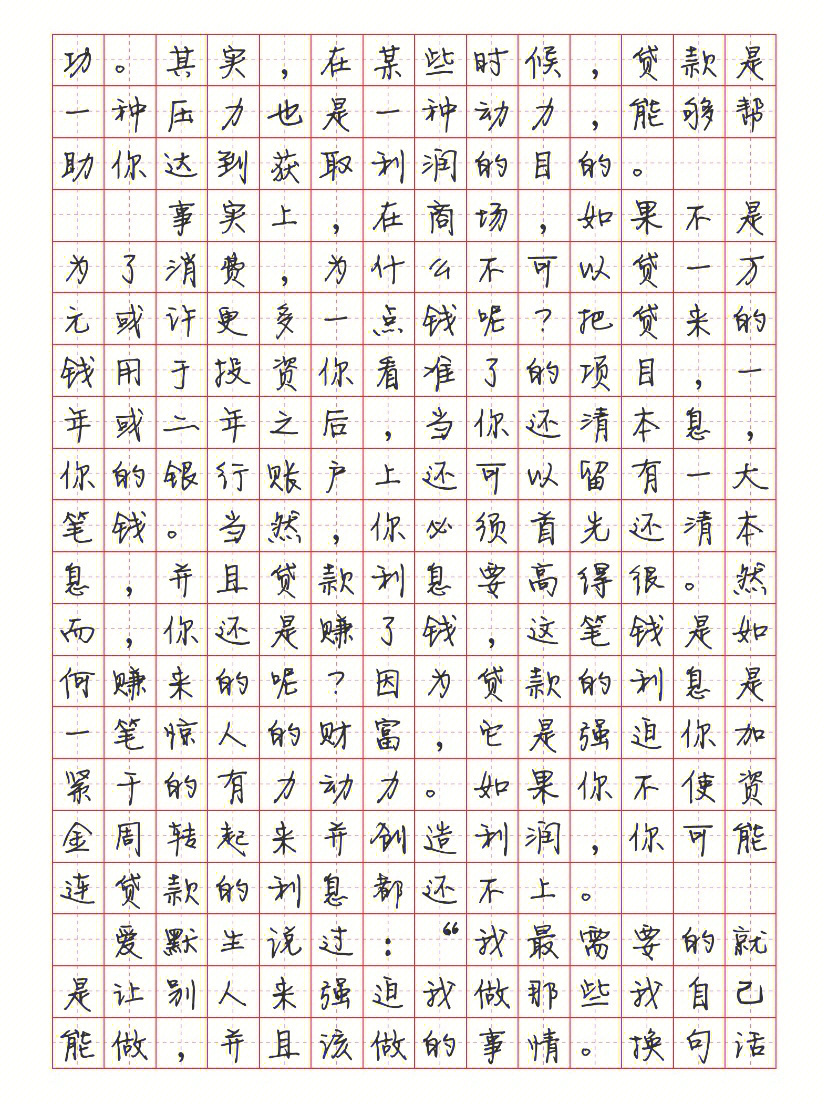 功。其实,在某些时候,贷款是
一种压力也是一种动力,能够帮
助你达到获取利润的目的。
事实上,在商场,如果不是
为了消费,为什么不可以贷一万
元或许更多一点钱呢?把贷来的
钱用于投资你看准了的项目,一
年或二年之后,当你还清本息,
你的银行账户上还可以留有一大
笔钱。当然,你必须首先还清本
息,并且贷款利息要高得很。然
而,你还是赚了钱,这笔钱是如
何赚来的呢?因为贷款的利息是
一笔惊人的财富,它是强迫你加
紧干的有力动力。如果你不使资
金周转起来并创造利润,你可能
连贷款的利息都还不上。
爱默生说过:“我最需要的就
是让别人来强迫我做那些我自己
能做,并且该做的事情。换句话